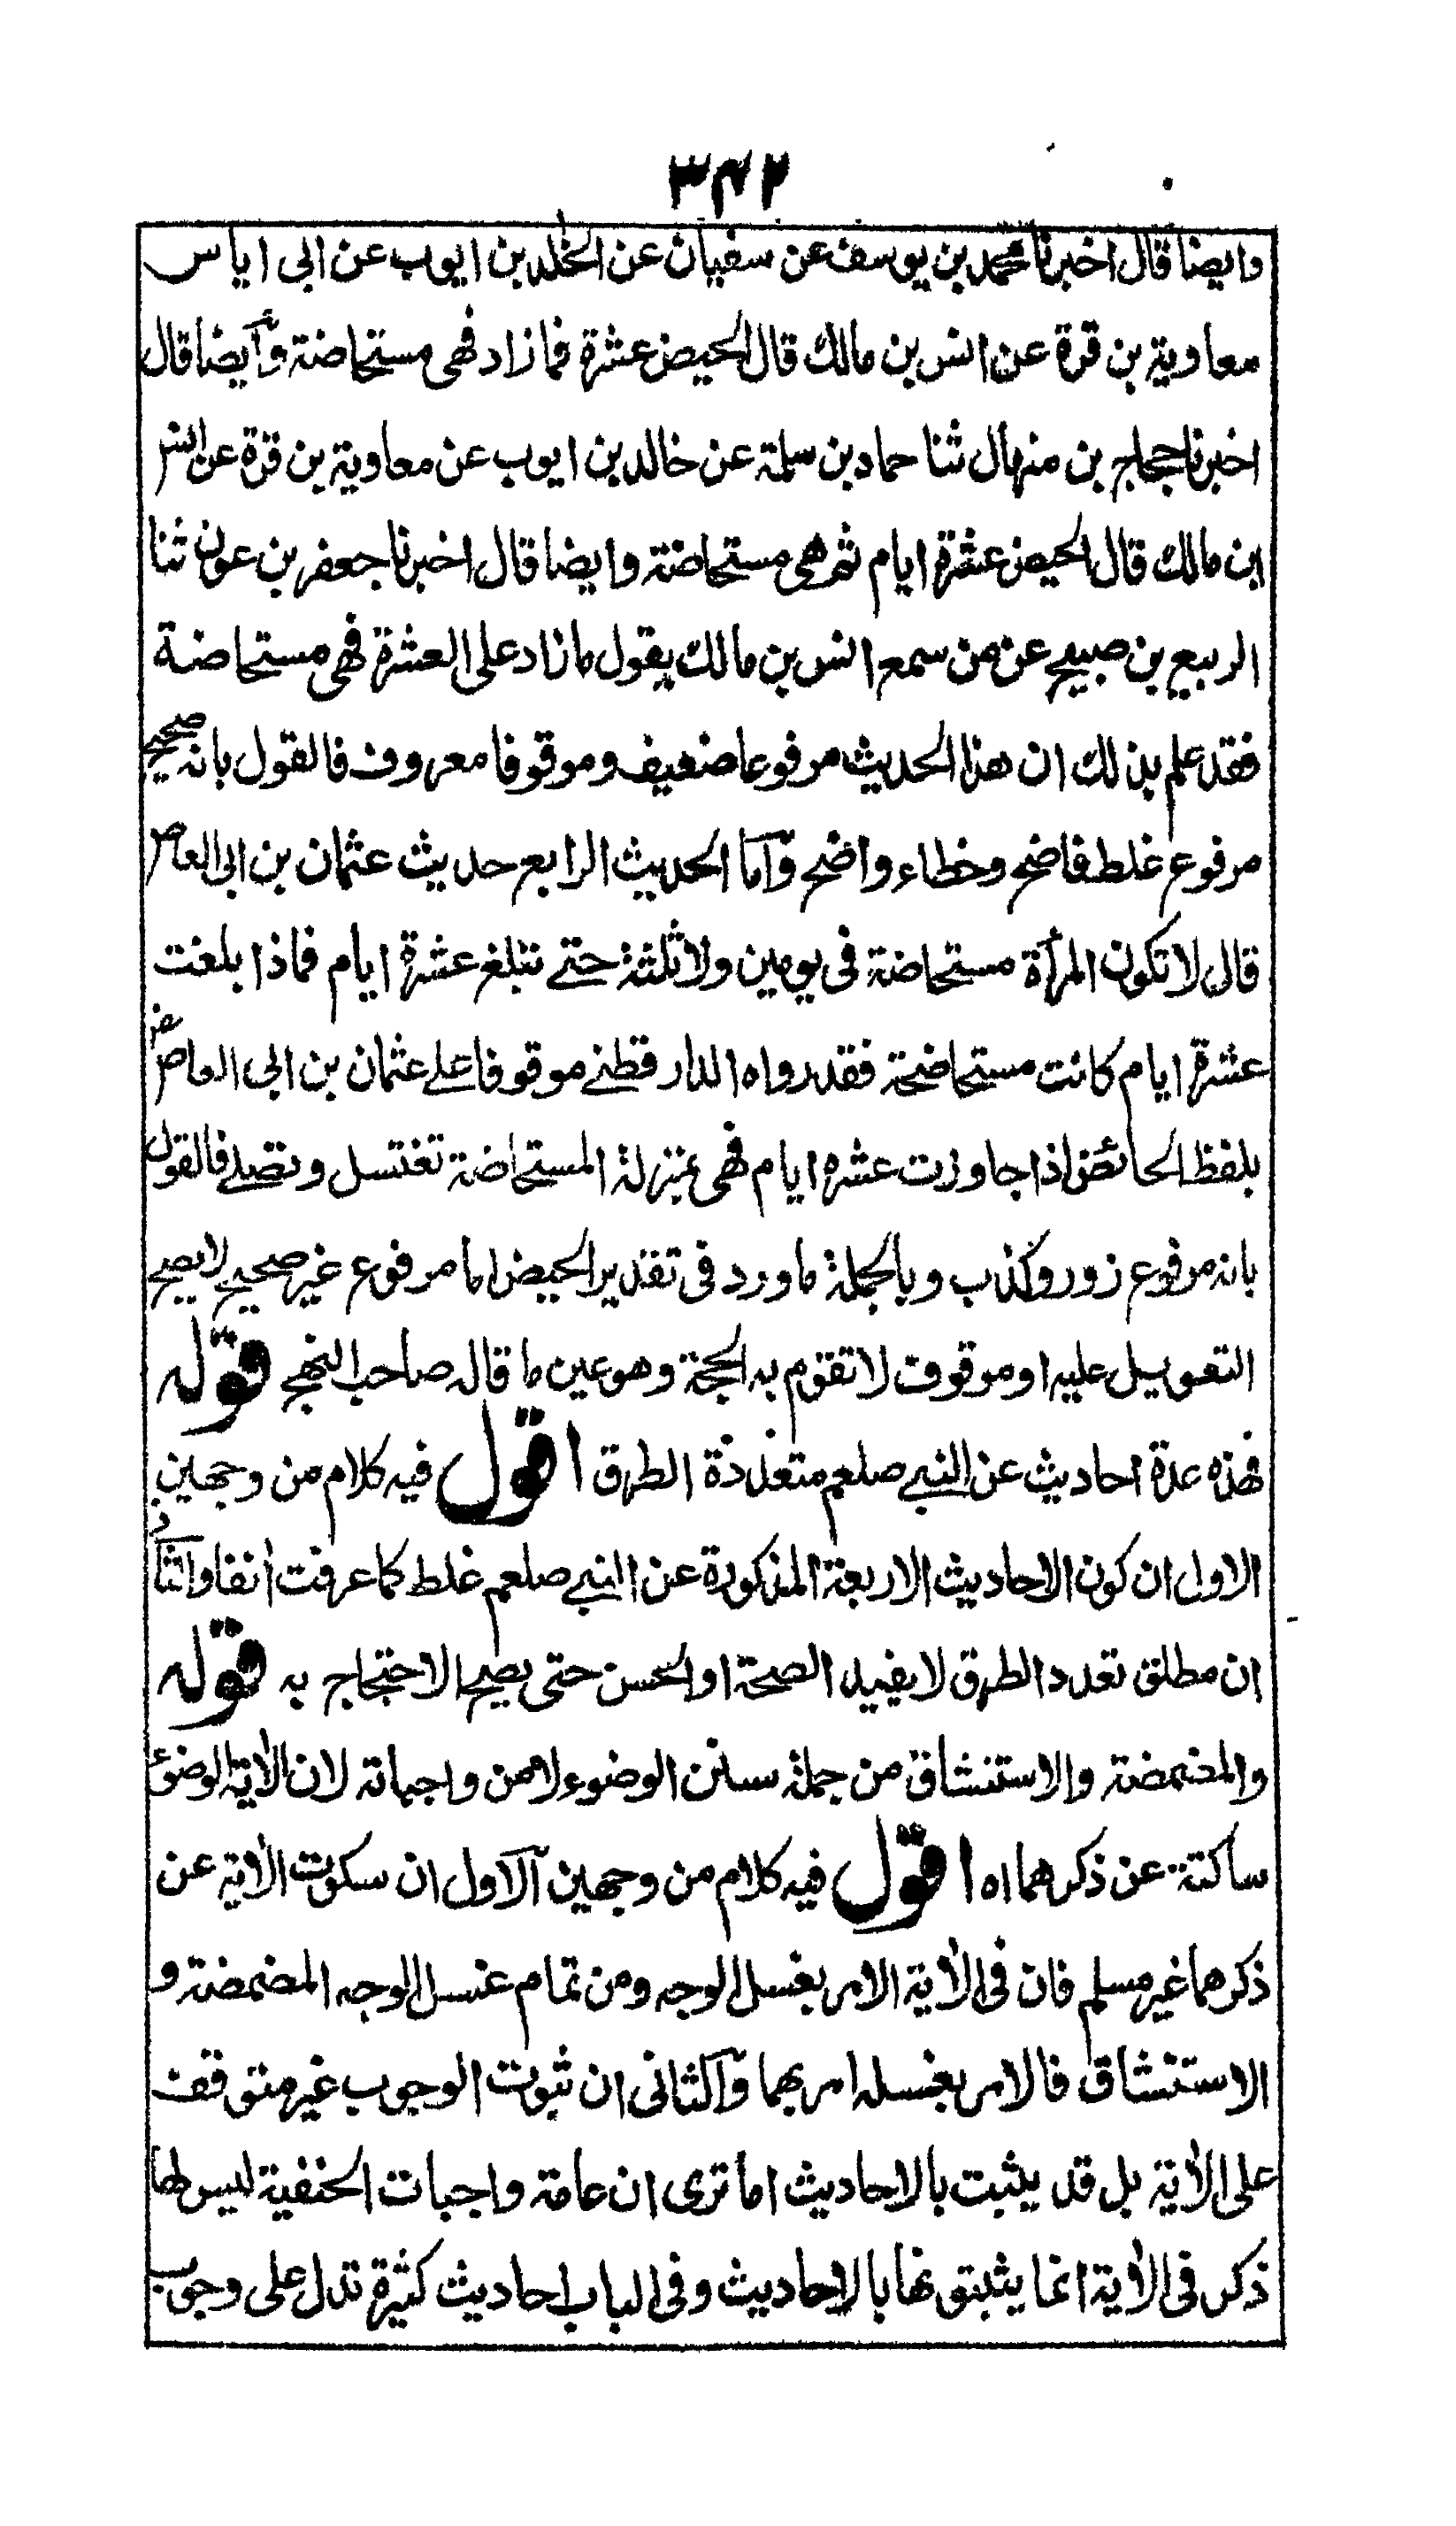 ۳۴۲
وايضا قال اخبرنا محمد بن يوسف عن سفيان عن الخلد بن ايوب عن ابى اياس
معاوية بن قرة عن انس بن مالك قال الحيض عشرة فما زاد فهى مستحاضة وآيضا قال
اخبرنا حجاج بن منهال ثنا حماد بن سلمة عن خالد بن ايوب عن معاوية بن قرة عن انس
ابن مالك قال الحيض عشرة ايام ثم هى مستحاضة وايضا قال اخبرنا جعفر بن عون ثنا
الربيع بن صبيح عن من سمع انس بن مالك يقول ما زاد على العشرة فهى مستحاضة
فقد علم بذلك ان هذا الحديث مرفوعا ضعيف وموقوفا معروف فالقول بانه صحيح
مرفوع غلط فاضح وخطاء واضح وآما الحديث الرابع حديث عثمان بن ابى العاص
قال لا تكون المرأة مستحاضة فى يومين ولا ثلثة حتے تبلغ عشرة ايام فاذا بلغت
عشرة ايام كانت مستحاضحة فقد رواه الدار قطنے موقوفا علے عثمان بن ابى العاص رض
بلفظ الحائض اذا جاوزت عشره ايام فهى بمنزلة المستحاضة تغتسل وتصلے فالقول
بانه مرفوع زور وكذب وبالجملة ما ورد فى تقدير الحيض اما مرفوع غير صحيح لا يصح
التعويل عليه او موقوف لا تقوم به الحجة وهو عين ما قاله صاحب النهج قوله
فهذه عدة احاديث عن النبے صلعم متعددة الطرق اقول فيه كلام من وجهين
الاول ان كون الاحاديث الاربعة المذكورة عن النبے صلعم غلط كما عرفت أنفا والثانى
ان مطلق تعدد الطرق لا يفيد الصحة او الحسن حتى يصح الاحتجاج به قوله
والمضمضة والاستنشاق من جملة سنن الوضوء لا من واجباته لان الاية الوضوء
ساكتة عن ذكرهما اه اقول فيه كلام من وجهين آلاول ان سكوت الاية عن
ذكرهما غير مسلم فان فى الاية الامر بغسل الوجه ومن تمام غسل الوجه المضمضة و
الاستنشاق فالامر بغسله امر بهما وآلثانى ان ثبوت الوجوب غير متوقف
على الاية بل قد يثبت بالاحاديث اما ترى ان عامة واجبات الحنفية ليس لها
ذكر فى الاية انما يثبتونها بالاحاديث وفى الباب احاديث كثيرة تدل على وجوب